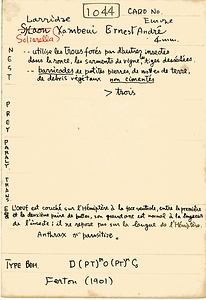 1044 CARD NO.
Larridae Europe
Solierella Xambeui Ernest André
NEST
-- utilise les trous forés par d'autres insectes
dans la ronce, les sarments de vigne, tiges desséchées.
-- barricades de petites pierres, de mottes de terre,
de débris végétaux non cimentés
> trois
PREY
PARALY
TRANS
EGG
L'oeuf est couché sur l'Hémiptère à la face ventrale, entre la première
et la deuxième paire de pattes, son grand axe est normal à la longueur
de l'insecte; il ne repose pas sur la longue de l'Hémiptère.
Anthrax parasitise.
TYPE BEH. D (PT)ⁿ O (PT)ⁿ C
Ferton (1901)